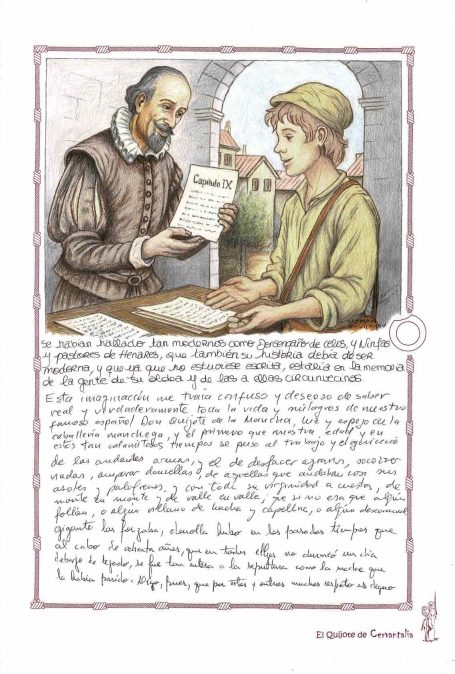 Capítulo IX
se habían hallado tan modernos como Desengaño de celos, y Ninfas
y pastores de Henares, que también su historia debía de ser
moderna, y que ya que no estuviese escrita, estaría en la memoria
de la gente de su aldea y de las a ellas circunvecinas.
Esta imaginación me traía confuso y deseoso de saber
real y verdaderamente toda la vida y milagros de nuestro
famoso español Don Quijote de la Mancha, luz y espejo de la
caballería manchega, y el primero que nuestra edad y en
estos tan calamitosos tiempos se puso al trabajo y ejercicio
de las andantes armas, y el de desfacer agravios, socorrer
viudas, amparar doncellas, de aquellas que andaban con sus
azotes y palafrenes, y con toda su virginidad a cuestas, de
monte en monte y de valle en valle; que si no era que algún
follón, o algún villano de hacha y capellina, o algún descomunal
gigante las forzaba, doncella hubo en los pasados tiempos que
al cabo de ochenta años, que en todos ellos no durmió un día
debajo de tejado, se fue tan entera a la sepultura como la madre que
la había parido. Digo, pues, que por estos y otros muchos respetos es digno
El Quijote de Cervantalia